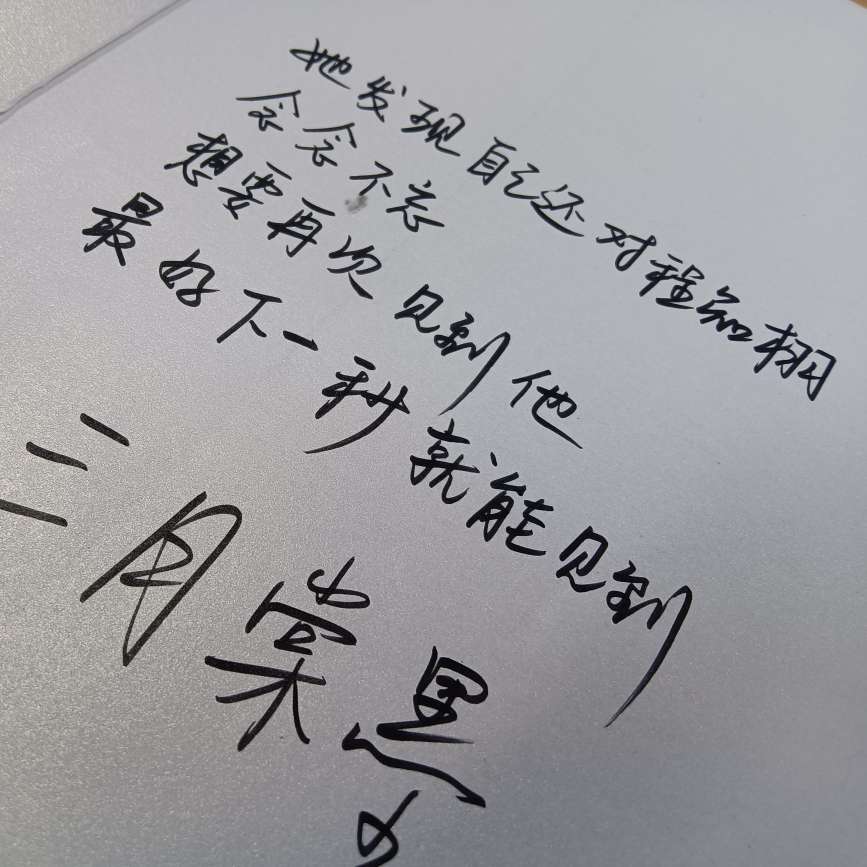 她发现自己还对程知栩
念念不忘
想要再次见到他
最好下一秒就能见到
三月棠墨